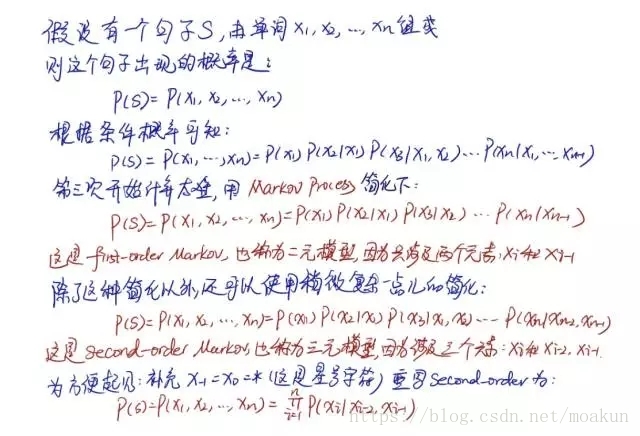 假设有一个句子S,由单词 x₁, x₂, ..., xₙ 组成
则这个句子出现的概率是:
P(S)= P(x₁, x₂, ..., xₙ)
根据条件概率可知:
P(S) = P(x₁, ..., xₙ) = P(x₁) P(x₂|x₁) P(x₃|x₁, x₂) ... P(xₙ|x₁, ..., xₙ₋₁)
第三次开始计算太难,用 Markov Process 简化下:
P(S) = P(x₁, x₂, ..., xₙ) = P(x₁) P(x₂|x₁) P(x₃|x₂) ... P(xₙ|xₙ₋₁)
这是 first-order Markov, 也称为二元模型,因为只涉及两个元素: xᵢ和 xᵢ₋₁
除了这种简化以外,还可以使用稍微复杂一点儿的简化:
P(S)= P(x₁, x₂, ..., xₙ)=P(x₁) P(x₂|x₁) P(x₃|x₁, x₂) ... P(xₙ|xₙ₋₂, xₙ₋₁)
这是 second-order Markov, 也称为三元模型,因为涉及三个元素: xᵢ和 xᵢ₋₂, xᵢ₋₁.
为方便起见: 补充 x₋₁ = x₀ = * (这是星号字符) 重写 second-order 为:
P(S)=P(x₁, x₂, ..., xₙ) = ∏ⁿᵢ₌₁ P(xᵢ|xᵢ₋₂, xᵢ₋₁)
https://blog.csdn.net/moakun